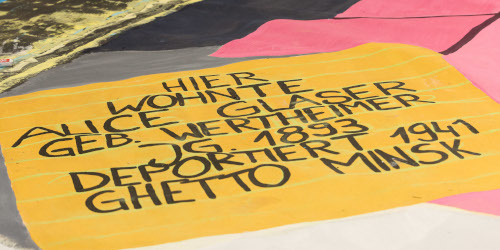 HIER
WOHNTE
ALICE GLASER
GEB. WERTHEIMER
JG. 1893
DEPORTIERT 1941
GHETTO MINSK